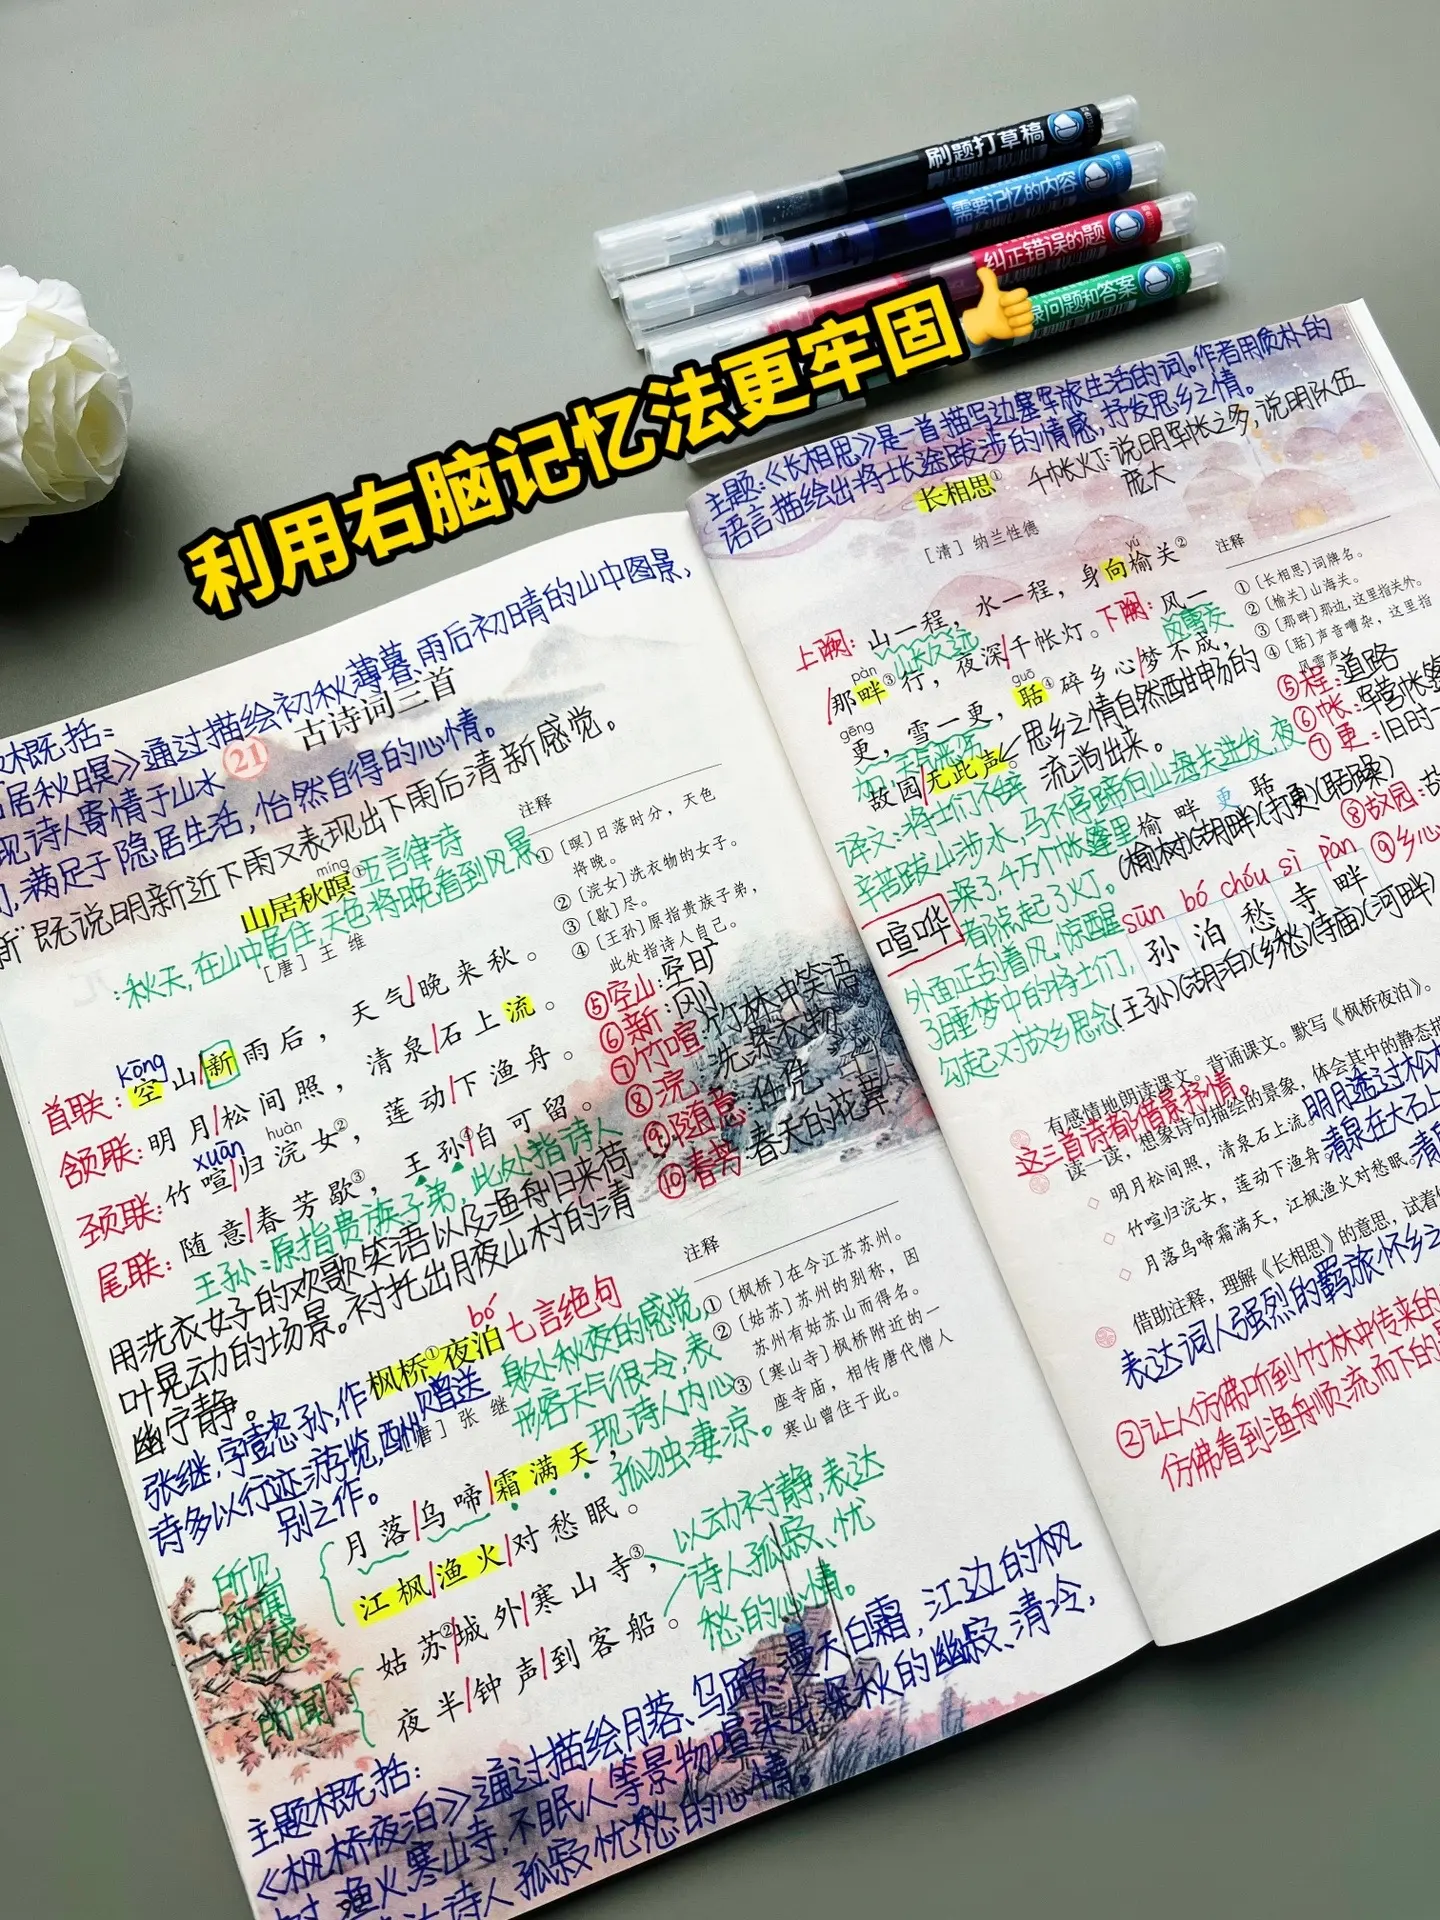 刷题打草稿
需要记忆的内容
纠正错误的题
录问题和答案
利用右脑记忆法更牢固👍
概括：
居秋暝》通过描绘初秋薄暮，雨后初晴的山中图景，
现诗人寄情于山水
满足于隐居生活，怡然自得的心情。
21 古诗词三首
新"既说明新近下雨又表现出下雨后清新感觉。
míng
山居秋暝① 五言律诗
：秋天，在山中居住，天色将晚看到风景
［唐］王 维
kōng
首联：空山/新雨后，天气/晚来秋。
颔联：明月/松间照，清泉/石上流。
xuān huàn
颈联：竹喧/归浣女②，莲动/下渔舟。
尾联：随意/春芳歇③，王孙④自可留。
王孙：原指贵族子弟，此处指诗人
用洗衣女子的欢歌笑语以及渔舟归来荷
叶晃动的场景。衬托出月夜山村的清
幽宁静。
注释
①［暝］日落时分，天色
将晚。
②［浣女］洗衣物的女子。
③［歇］尽。
④［王孙］原指贵族子弟，
此处指诗人自己。
⑤空山：空旷
⑥新：刚
⑦竹喧：竹林中笑语
⑧浣：洗涤衣物
⑨随意：任凭
⑩春芳：春天的花草
bó
枫桥①夜泊 七言绝句
［唐］张 继
张继，字懿孙，作
诗多以行迹游览，酬赠送
别之作。
身处秋夜的感觉，
形容天气很冷，表
现诗人内心
孤独凄凉。
月落/乌啼/霜满天，
江枫/渔火/对愁眠。
姑苏②/城外/寒山寺③，
夜半/钟声/到客船。
所见
所闻
所感
所闻
以动衬静，表达
诗人孤寂、忧
愁的心情。
注释
①［枫桥］在今江苏苏州。
②［姑苏］苏州的别称，因
苏州有姑苏山而得名。
③［寒山寺］枫桥附近的一
座寺庙，相传唐代僧人
寒山曾住于此。
主题概括：
《枫桥夜泊》通过描绘月落、乌啼、漫天白霜，江边的枫
渔火、寒山寺，不眠人等景物喧染出深秋的幽寂、清冷，
诗人孤寂忧愁的心情。
主题：《长相思》是一首描写边塞军旅生活的词。作者用质朴的
语言描绘出将士长途跋涉的情感，抒发思乡之情。
长相思① 千帐灯：说明军帐之多，说明队伍
庞大
［清］纳兰性德
yú
上阕：山一程，水一程，身向榆关②
山长水远
pàn
/那畔③行，夜深/千帐灯。下阕：风一
gēng guō
更，雪一更，聒④碎乡心/梦不成，
故园/无此声。
思乡之情自然而酣畅的
流淌出来。
注释
①［长相思］词牌名。
②［榆关］山海关。
③［那畔］那边，这里指关外。
④［聒］声音嘈杂，这里指
风雪声
⑤程：道路
⑥帐：军营帐篷
⑦更：旧时一
⑧故园：故
⑨乡心
译文：将士们不辞
辛苦跋山涉水，马不停蹄向山海关进发，夜
深了，千万个帐篷里
都点起了灯。
外面正刮着风，惊醒
了睡梦中的将士们，
勾起对故乡思念
喧哗
榆 畔 更 聒
(榆树)(湖畔)(打更)(聒噪)
sūn bó chóu sì pàn
孙 泊 愁 寺 畔
(王孙)(湖泊)(乡愁)(寺庙)(河畔)
有感情地朗读课文。背诵课文。默写《枫桥夜泊》。
这三首诗都是借景抒情。
读一读，想象诗句描绘的景象，体会其中的静态描
◇ 明月松间照，清泉石上流。明月透过松林
◇ 竹喧归浣女，莲动下渔舟。清泉在大石上
◇ 月落乌啼霜满天，江枫渔火对愁眠。
借助注释，理解《长相思》的意思，试着
表达词人强烈的羁旅怀乡之
②让人仿佛听到竹林中传来的
仿佛看到渔舟顺流而下的